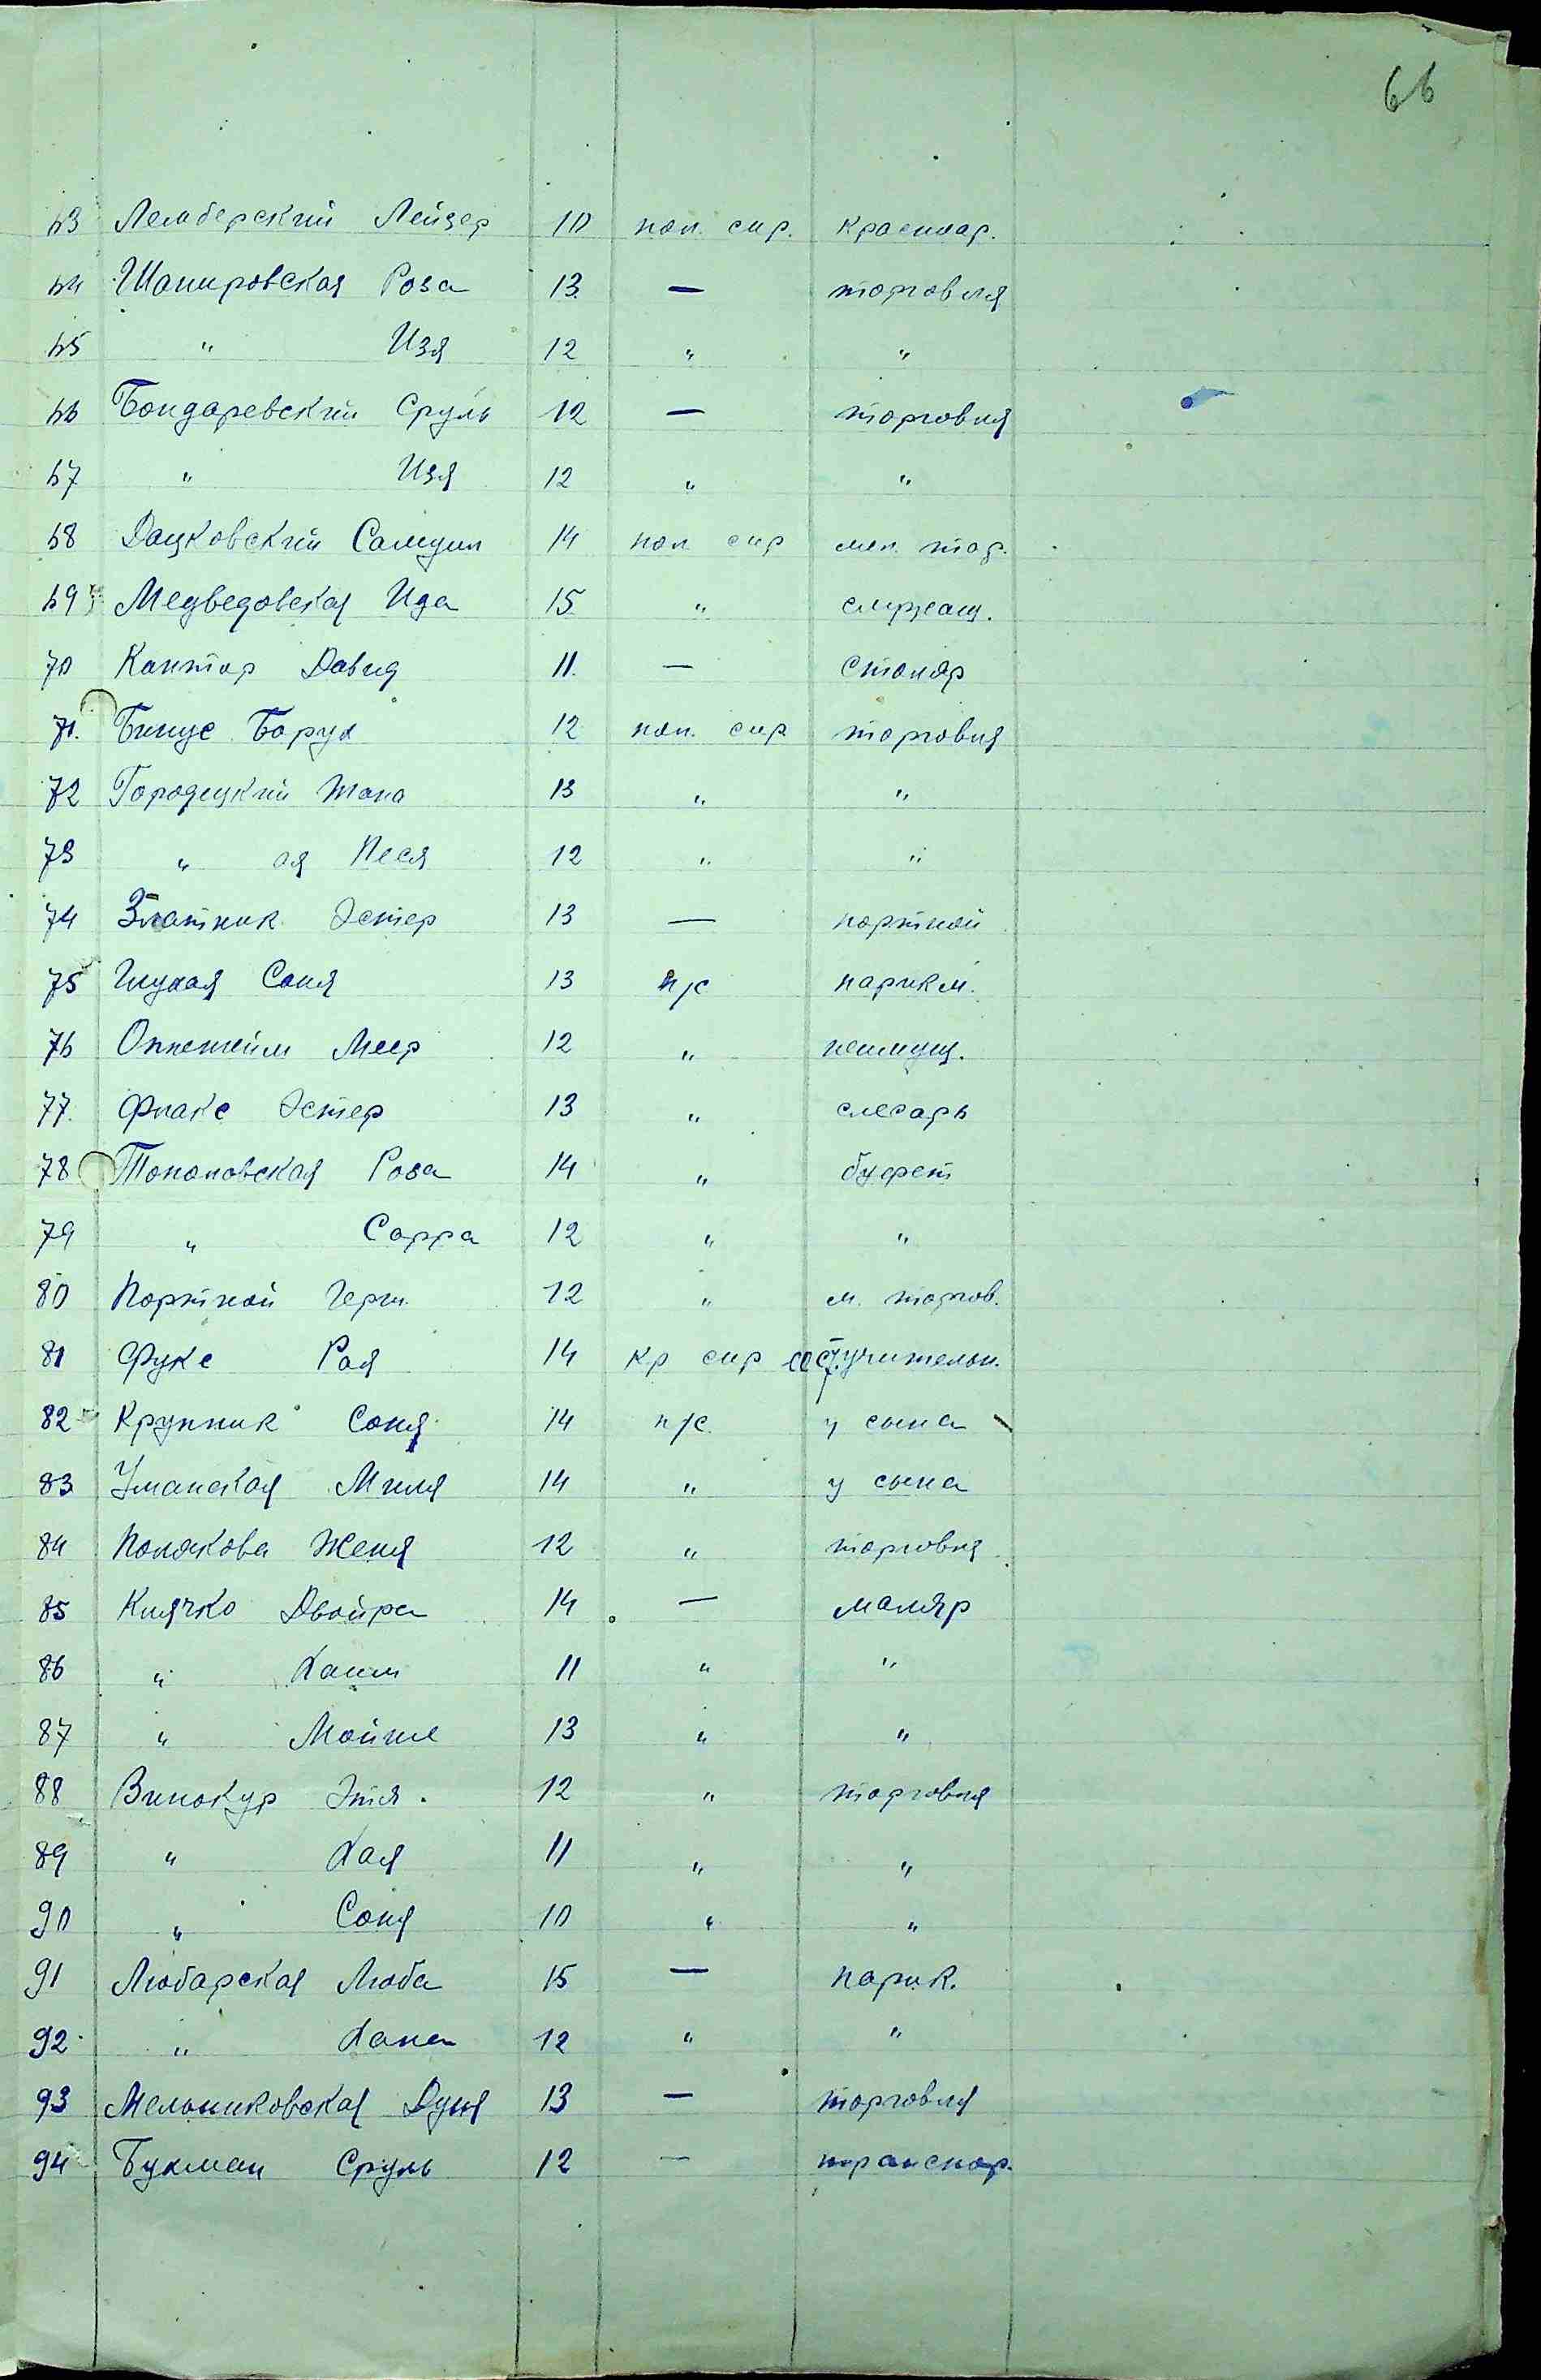 66
63 Лемберский Лейзер 10 пол. сир. краснодар.
64 Шапировская Роза 13 — торговля
65 " Изя 12 " "
66 Бондаревский Сруль 12 — торговля
67 " Изя 12 " "
68 Дацковский Самуил 14 пол. сир мел. тор.
69 Медведовская Ида 15 " служащ.
70 Кантор Давид 11 — столяр
71. Бинус Борух 12 пол. сир торговля
72 Городецкий Жана 13 " "
73 " ая Песя 12 " "
74 Златник Эстер 13 — портной
75 Глухая Соня 13 п/с парикм.
76 Меер 12 " неимущ.
77. Флакс Эстер 13 " слесарь
78 Тополовская Роза 14 " буфет
79 " Сарра 12 " "
80 Портной Герш. 12 " м. торгов.
81 Фукс Рая 14 кр сир учительн.
82 Крупник Соня 14 п/с. у сына
83 Уманская Миля 14 " у сына
84 Полякова Женя 12 " торговля
85 Клячко Двойра 14 — маляр
86 " Хаим 11 " "
87 " Мойше 13 " "
88 Винокур Этя. 12 " торговля
89 " Хая 11 " "
90 " Соня 10 " "
91 Любарская Люба 15 — парик.
92 " Хана 12 " "
93 Мельниковская Дуня 13 — торговля
94 Бухман Сруль 12 — транспор.